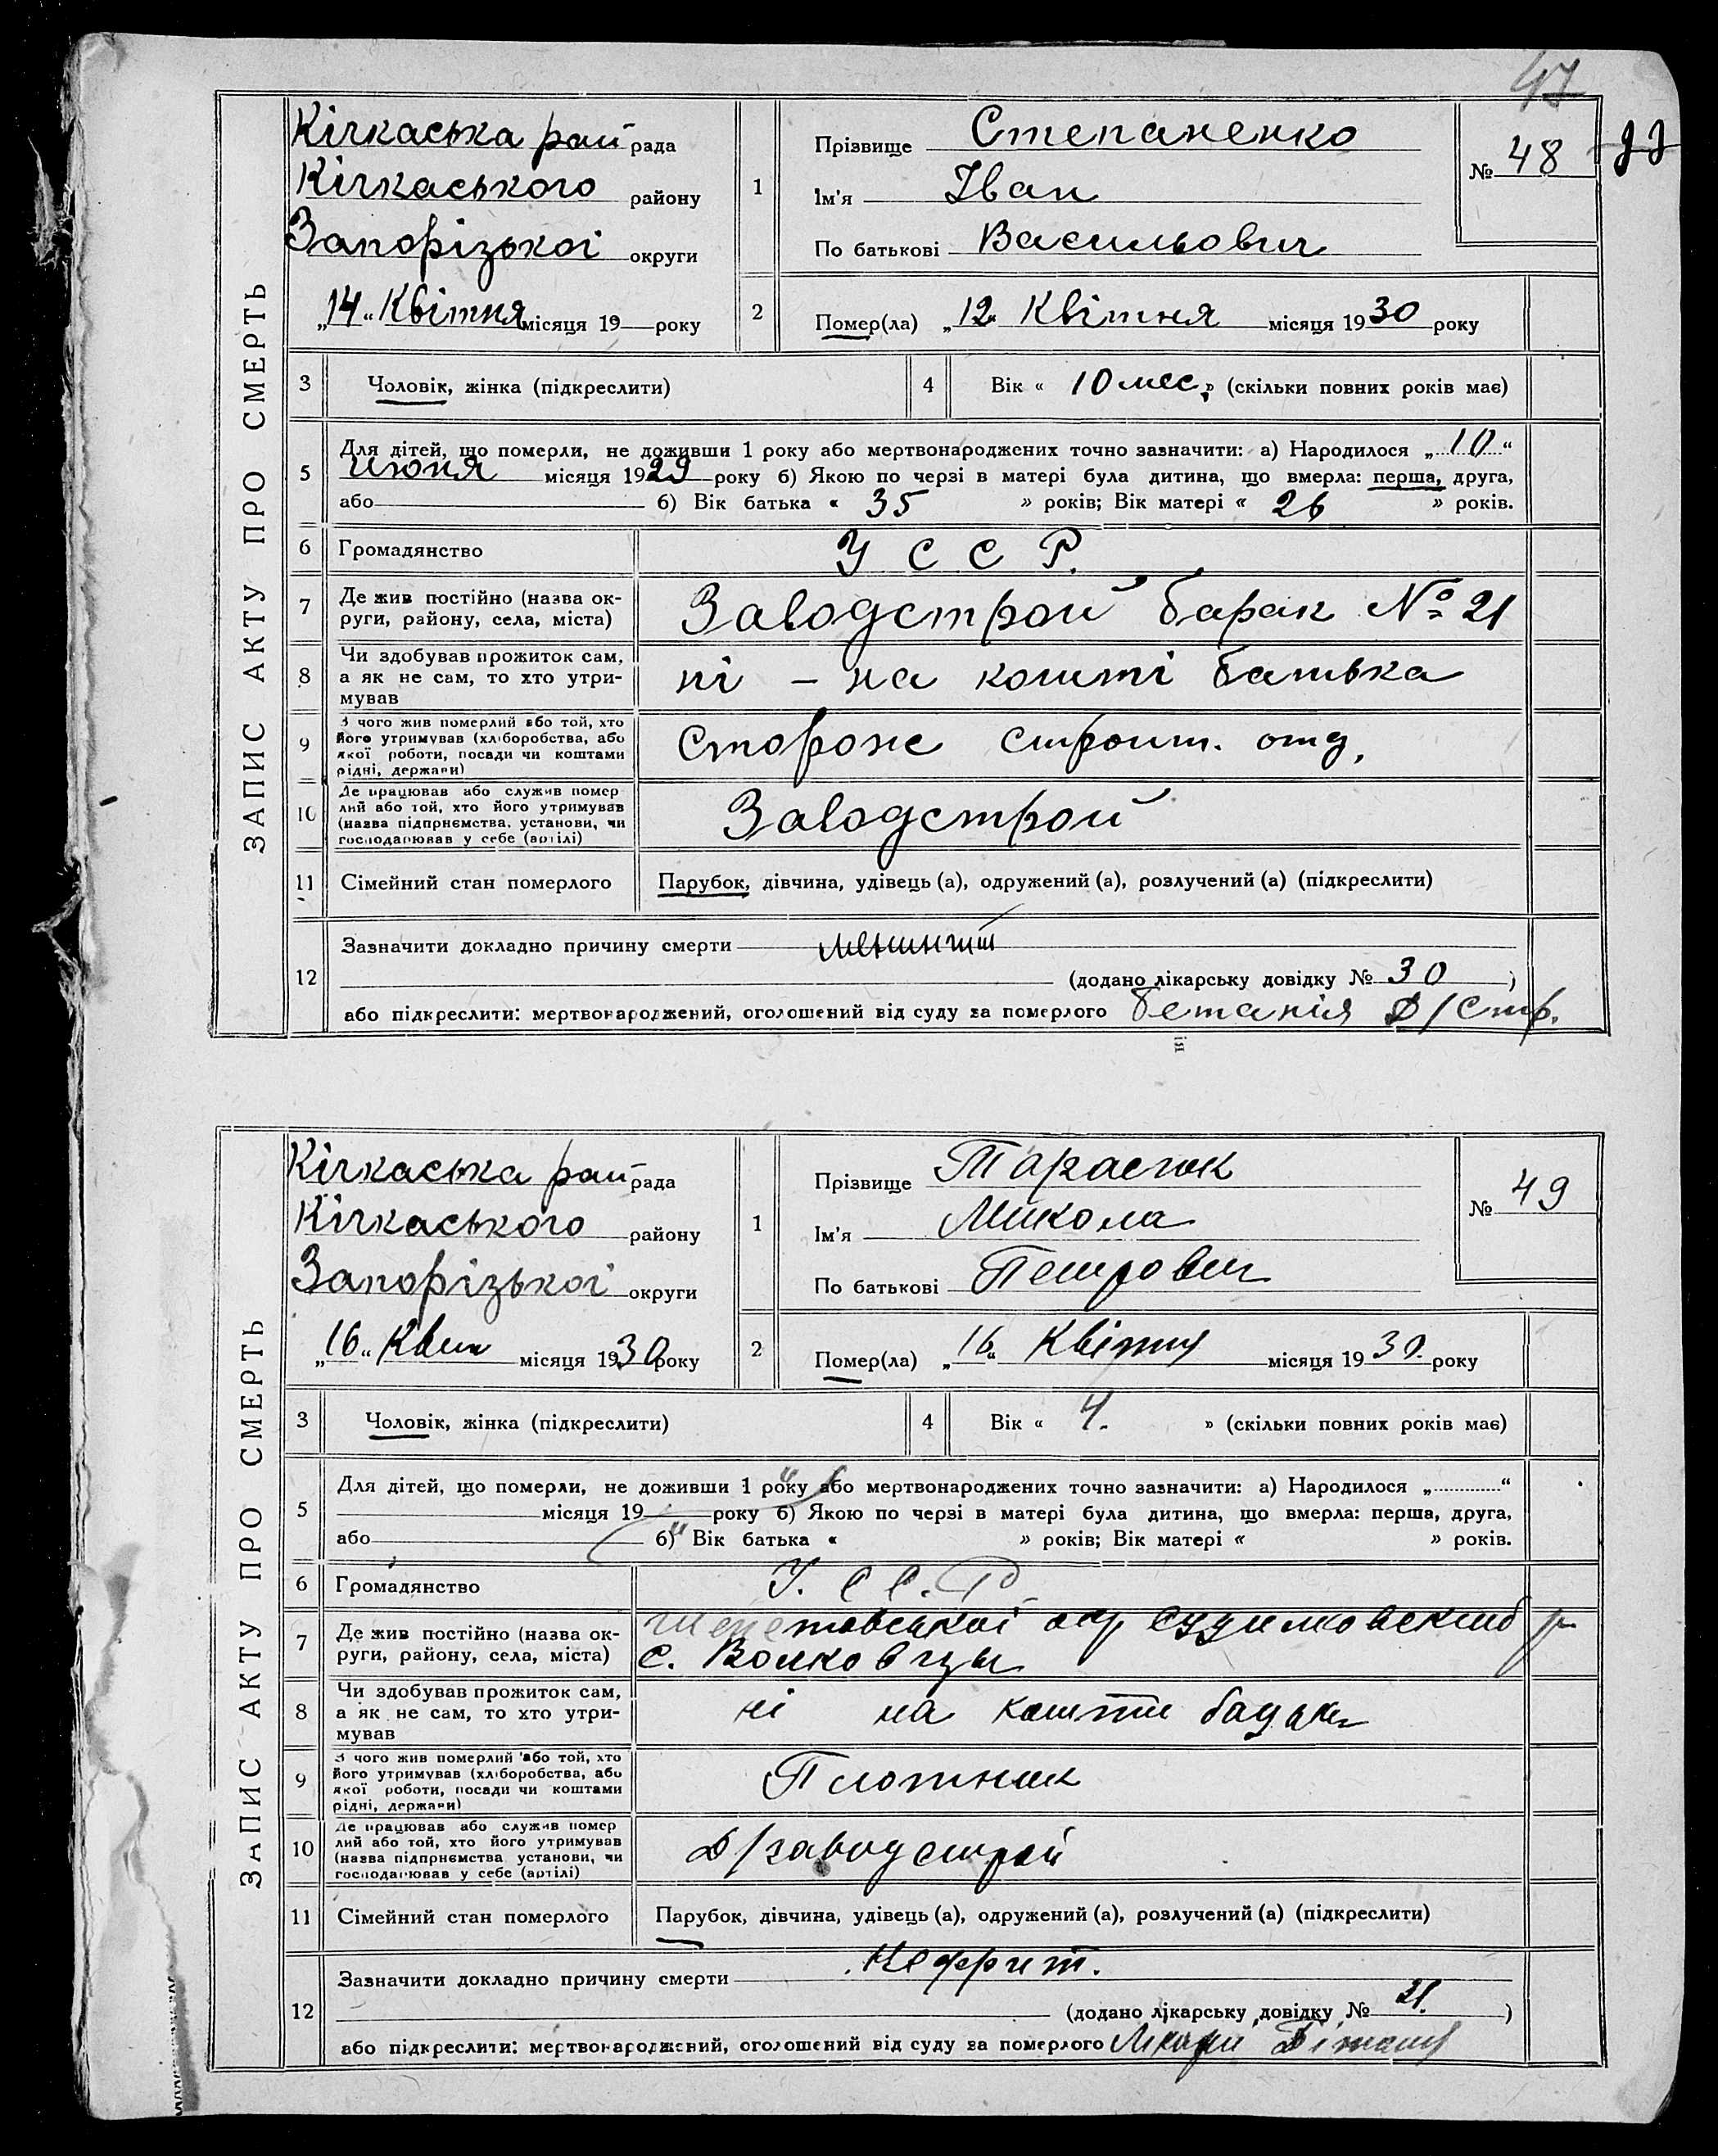 47
ЗАПИС АКТУ ПРО СМЕРТЬ
Кічкаська рай рада
Кічкаського району
Запорізької округи
„14“ Квітня місяця 19 року
1
Прізвище Степаненко
Ім'я Іван
По батькові Васильович
№ 48
2
Помер(ла) „12“ Квітня місяця 1930 року
3
Чоловік, жінка (підкреслити)
4
Вік « 10 мес. » (скільки повних років має)
5
Для дітей, що померли, не доживши 1 року або мертвонароджених точно зазначити: а) Народилося „10“
июня місяця 1929 року б) Якою по черзі в матері була дитина, що вмерла: перша, друга,
або б) Вік батька « 35 » років; Вік матері « 26 » років.
6
Громадянство
У С С Р.
7
Де жив постійно (назва ок-
руги, району, села, міста)
Заводстрой барак № 21
8
Чи здобував прожиток сам,
а як не сам, то хто утри-
мував
ні – на кошти батька
9
З чого жив померлий або той, хто
його утримував (хліборобства, або
якої роботи, посади чи коштами
рідні, держави)
Сторож строит. отд.
10
Де працював або служив помер
лий або той, хто його утримував
(назва підприємства, установи, чи
господарював у себе (артілі)
Заводстрой
11
Сімейний стан померлого
Парубок, дівчина, удівець (а), одружений (а), розлучений (а) (підкреслити)
12
Зазначити докладно причину смерти менингит
(додано лікарську довідку № 30 )
або підкреслити: мертвонароджений, оголошений від суду за померлого бетанія Д/Стр.
ЗАПИС АКТУ ПРО СМЕРТЬ
Кічкаська рай рада
Кічкаського району
Запорізької округи
„16“ Квит місяця 1930 року
1
Прізвище Тарасюк
Ім'я Микола
По батькові Петрович
№ 49
2
Помер(ла) „16“ Квітня місяця 1930. року
3
Чоловік, жінка (підкреслити)
4
Вік « 4. » (скільки повних років має)
5
Для дітей, що померли, не доживши 1 року або мертвонароджених точно зазначити: а) Народилося „ “
місяця 19 року б) Якою по черзі в матері була дитина, що вмерла: перша, друга,
або б) Вік батька « » років; Вік матері « » років.
6
Громадянство
У. С С. Р
7
Де жив постійно (назва ок-
руги, району, села, міста)
Шепетовської окр р
с. Волковцы
8
Чи здобував прожиток сам,
а як не сам, то хто утри-
мував
ні на кошти
9
З чого жив померлий або той, хто
його утримував (хліборобства, або
якої роботи, посади чи коштами
рідні, держави)
Плотник
10
Де працював або служив помер
лий або той, хто його утримував
(назва підприємства установи, чи
господарював у себе (артілі)
Д/заводстрой
11
Сімейний стан померлого
Парубок, дівчина, удівець (а), одружений (а), розлучений (а) (підкреслити)
12
Зазначити докладно причину смерти Неффрит.
(додано лікарську довідку № 21. )
або підкреслити: мертвонароджений, оголошений від суду за померлого